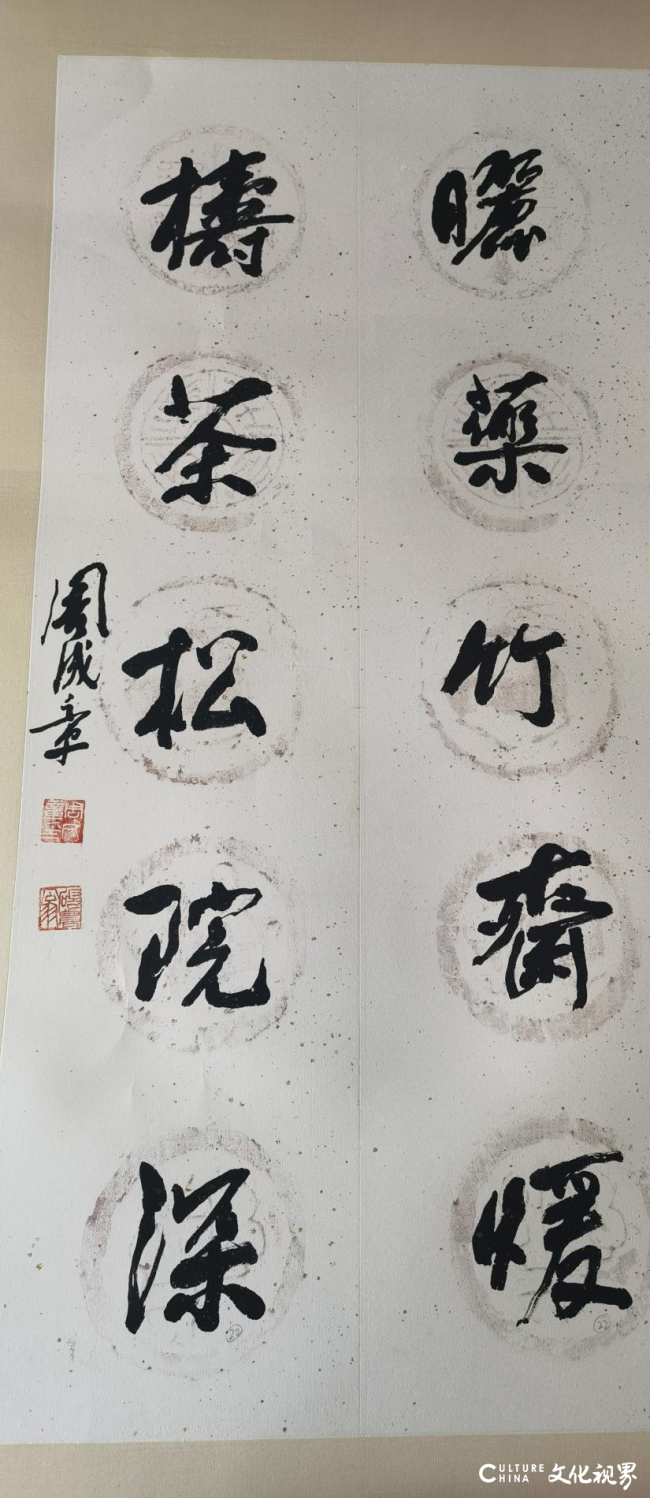 曬藥竹齋煖
檮茶松院深
周成章
22
22
CULTURE
CHINA
文化视界